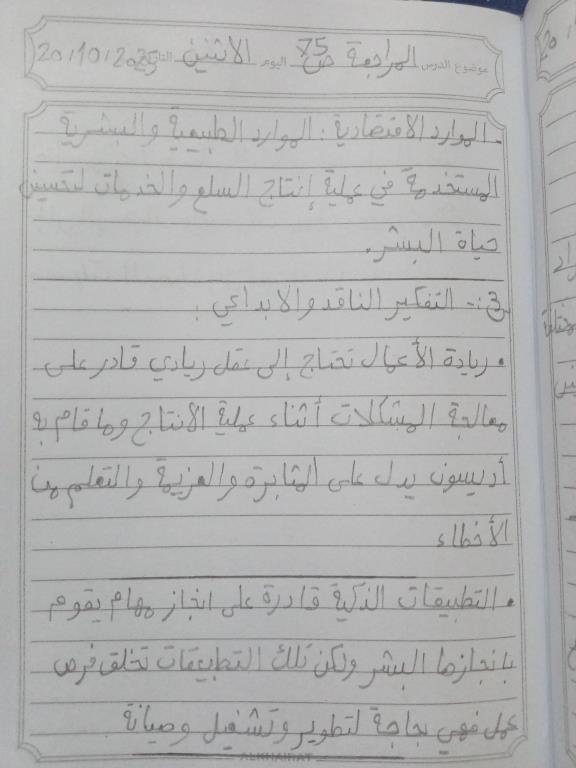 موضوع الدرس المراجعة ص75 اليوم الاثنين التاريخ 20/10/2025
- الموارد الاقتصادية : الموارد الطبيعية والبشرية
المستخدمة في عملية إنتاج السلع والخدمات لتحسين
حياة البشر.
س3:- التفكير الناقد والابداعي :
• ريادة الأعمال تحتاج إلى عقل ريادي قادر على
معالجة المشكلات أثناء عملية الانتاج وما قام به
أديسون يدل على المثابرة والعزيمة والتعلم من
الأخطاء
• التطبيقات الذكية قادرة على انجاز مهام يقوم
بانجازها البشر ولكن تلك التطبيقات تخلق فرص
عمل فهي بحاجة لتطوير وتشغيل وصيانة
ALKHAIRAT